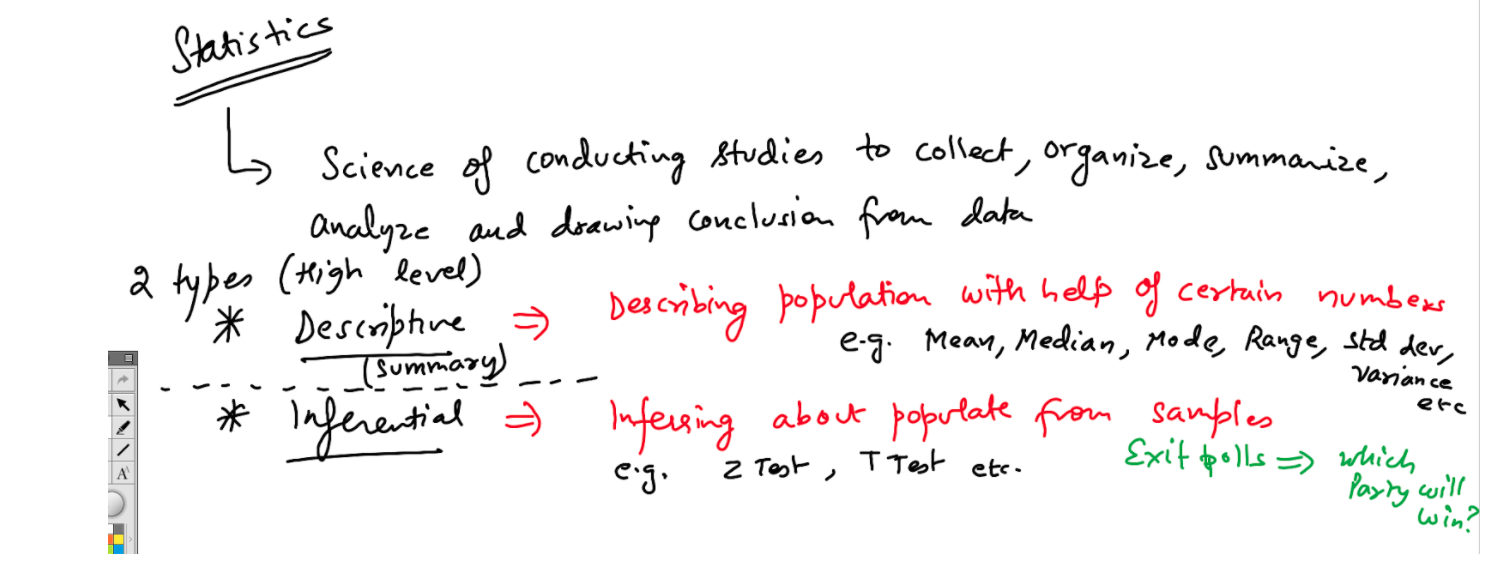 Statistics
Science of conducting studies to collect, organize, summarize,
analyze and drawing conclusion from data
2 types (High level)
* Descriptive ⇒ Describing population with help of certain numbers
(Summary) e.g. Mean, Median, Mode, Range, std dev,
variance
etc
* Inferential ⇒ Inferring about populate from samples
e.g. Z Test, T Test etc. Exit polls ⇒ which
Party will
win?
A